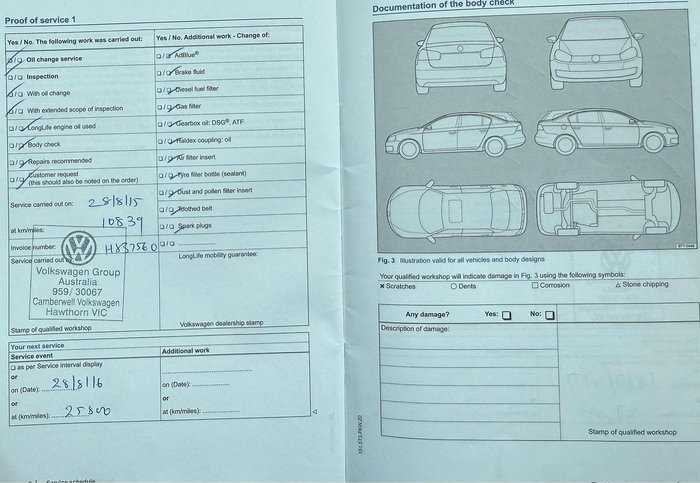 Proof of service 1
Yes / No. The following work was carried out:
Yes / No. Additional work - Change of:
Oil change service
Inspection
With oil change
With extended scope of inspection
LongLife engine oil used
Body check
Repairs recommended
Customer request
(this should also be noted on the order)
AdBlue®
Brake fluid
Diesel fuel filter
Gas filter
Gearbox oil: DSG®, ATF
Haldex coupling: oil
Air filter insert
Tyre filler bottle (sealant)
Dust and pollen filter insert
Toothed belt
Spark plugs
Service carried out on: 28/8/15
at km/miles: 10839
Invoice number: H837560
Service carried out by:
Volkswagen Group
Australia
959/ 30067
Camberwell Volkswagen
Hawthorn VIC
Stamp of qualified workshop
LongLife mobility guarantee:
Volkswagen dealership stamp
Your next service
Service event
as per Service interval display
or
on (Date): 28/8/16
or
at (km/miles): 25800
Additional work
on (Date):
or
at (km/miles):
Service schedule
Documentation of the body check
BTT-0449
Fig. 3 Illustration valid for all vehicles and body designs
Your qualified workshop will indicate damage in Fig. 3 using the following symbols:
× Scratches ○ Dents □ Corrosion △ Stone chipping
Any damage? Yes: No:
Description of damage:
Stamp of qualified workshop
151.5T3.PKW.20